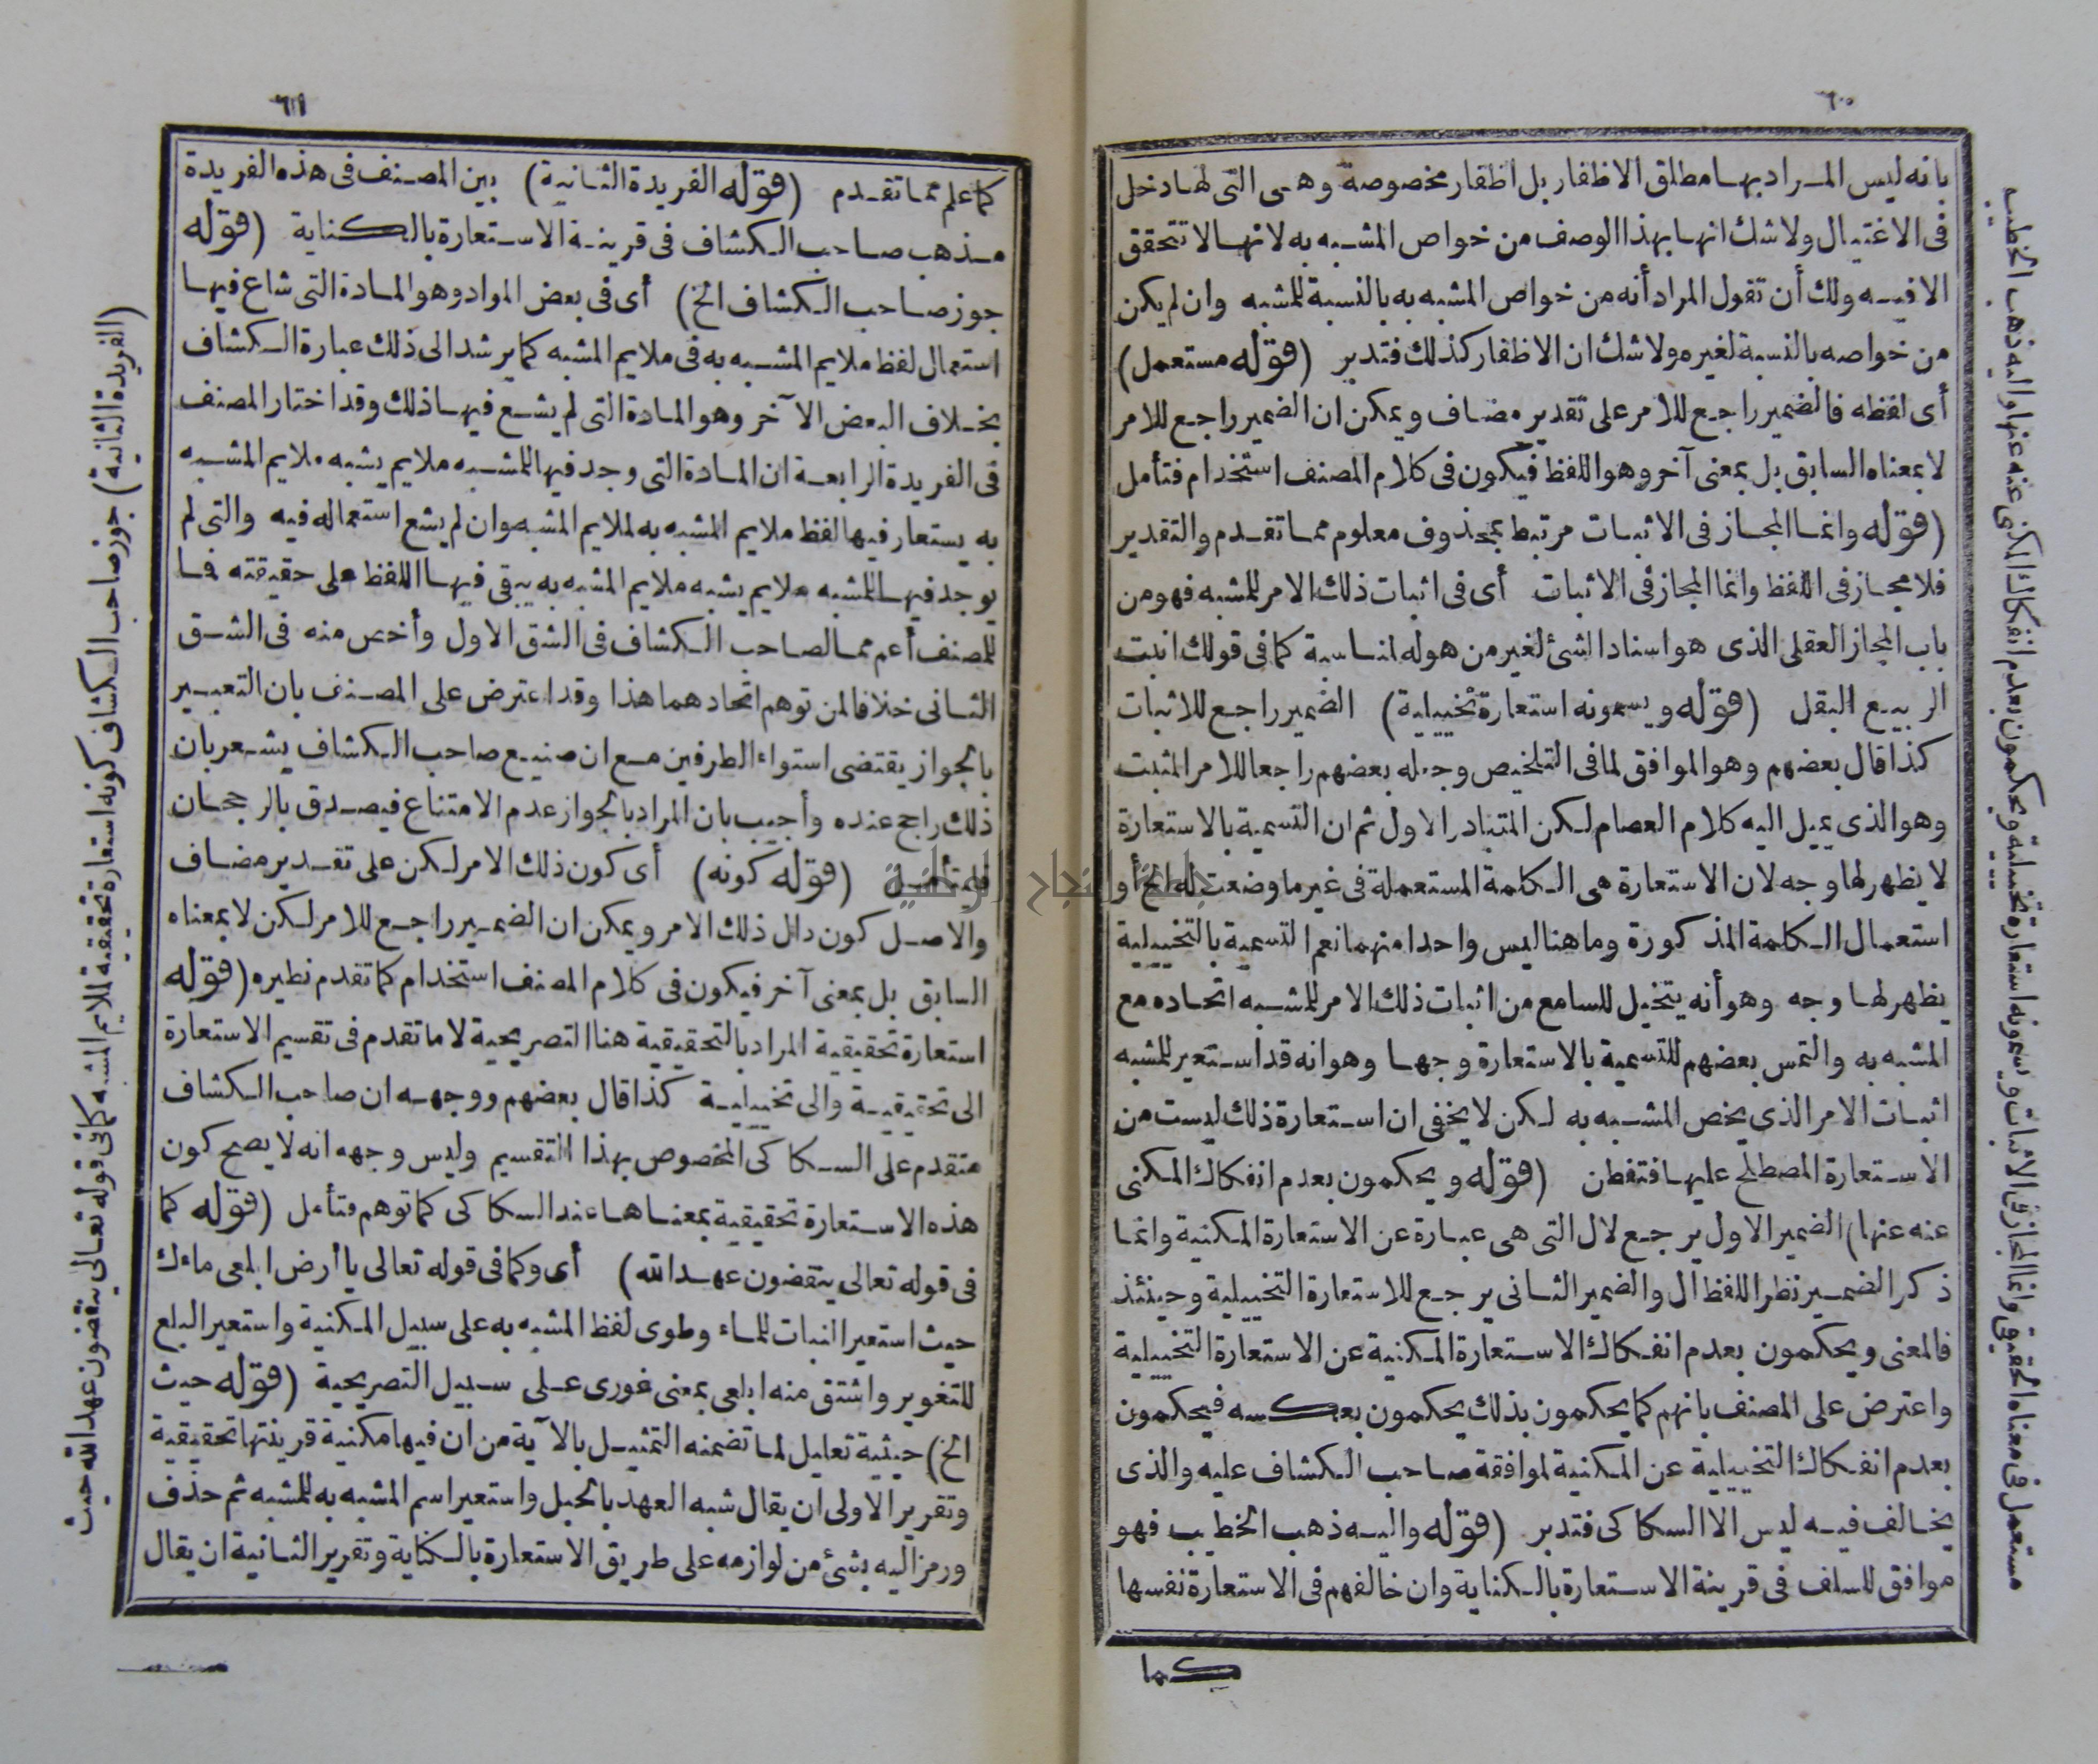 ٦٠
بانه ليس المراد بها مطلق الاظفار بل اظفار مخصوصة وهى التى لها دخل
فى الاغتيال ولا شك انها بهذا الوصف من خواص المشبه به لانها لا تتحقق
الا فيه ولك أن تقول المراد أنه من خواص المشبه به بالنسبة للمشبه وان لم يكن
من خواصه بالنسبة لغيره ولا شك ان الاظفار كذلك فتدبر (قوله مستعمل)
أى لفظه فالضمير راجع للامر على تقدير مضاف ويمكن ان الضمير راجع للامر
لا بمعناه السابق بل بمعنى آخر وهو اللفظ فيكون فى كلام المصنف استخدام فتأمل
(قوله وانما المجاز فى الاثبات مرتبط بمحذوف معلوم مما تقدم والتقدير
فلا مجاز فى اللفظ وانما المجاز فى الاثبات أى فى اثبات ذلك الامر للمشبه فهو من
باب المجاز العقلى الذى هو اسناد الشئ لغير من هو له لمناسبة كما فى قولك انبت
الربيع البقل (قوله ويسمونه استعارة تخييلية) الضمير راجع للاثبات
كذا قال بعضهم وهو الموافق لما فى التلخيص وجعله بعضهم راجعا للامر المثبت
وهو الذى يميل اليه كلام العصام لكن المتبادر الاول ثم ان التسمية بالاستعارة
لا يظهر لها وجه لان الاستعارة هى الكلمة المستعملة فى غير ما وضعت له الخ أو
استعمال الكلمة المذكورة وما هنا ليس واحدا منهما نعم التسمية بالتخييلية
يظهر لها وجه وهو أنه يتخيل للسامع من اثبات ذلك الامر للمشبه اتحاده مع
المشبه به والتمس بعضهم للتسمية بالاستعارة وجها وهو انه قد استعير للمشبه
اثبات الامر الذى يخص المشبه به لكن لا يخفى ان استعارة ذلك ليست من
الاستعارة المصطلح عليها فتفطن (قوله ويحكمون بعدم انفكاك المكنى
عنه عنها) الضمير الاول يرجع لال التى هى عبارة عن الاستعارة المكنية وانما
ذكر الضمير نظرا للفظ ال والضمير الثانى يرجع للاستعارة التخييلية وحينئذ
فالمعنى ويحكمون بعدم انفكاك الاستعارة المكنية عن الاستعارة التخييلية
واعترض على المصنف بانهم كما يحكمون بذلك يحكمون بعكسه فيحكمون
بعدم انفكاك التخييلية عن المكنية لموافقة صاحب الكشاف عليه والذى
يخالف فيه ليس الا السكاكى فتدبر (قوله واليه ذهب الخطيب فهو
موافق للسلف فى قرينة الاستعارة بالكناية وان خالفهم فى الاستعارة نفسها
كما
مستعمل فى معناه الحقيقى وانما المجاز فى الاثبات ويسمونه استعارة تخييلية ويحكمون بعدم انفكاك المكنى عنه عنها واليه ذهب الخطيب
٦١
كما علم مما تقدم (قوله الفريدة الثانية) بين المصنف فى هذه الفريدة
مذهب صاحب الكشاف فى قرينة الاستعارة بالكناية (قوله
جوز صاحب الكشاف الخ) أى فى بعض المواد وهو المادة التى شاع فيها
استعمال لفظ ملايم المشبه به فى ملايم المشبه كما يرشد الى ذلك عبارة الكشاف
بخلاف البعض الآخر وهو المادة التى لم يشع فيها ذلك وقد اختار المصنف
فى الفريدة الرابعة ان المادة التى وجد فيها للمشبه ملايم يشبه ملايم المشبه
به يستعار فيها لفظ ملايم المشبه به لملايم المشبه وان لم يشع استعماله فيه والتى لم
يوجد فيها للمشبه ملايم يشبه ملايم المشبه به يبقى فيها اللفظ على حقيقته فما
للمصنف أعم مما لصاحب الكشاف فى الشق الاول وأخص منه فى الشق
الثانى خلافا لمن توهم اتحادهما هذا وقد اعترض على المصنف بان التعبير
بالجواز يقتضى استواء الطرفين مع ان صنيع صاحب الكشاف يشعر بان
ذلك راجح عنده وأجيب بان المراد بالجواز عدم الامتناع فيصدق بالرجحان
فتأمل (قوله كونه) أى كون ذلك الامر لكن على تقدير مضاف
والاصل كون دال ذلك الامر ويمكن ان الضمير راجع للامر لكن لا بمعناه
السابق بل بمعنى آخر فيكون فى كلام المصنف استخدام كما تقدم نظيره (قوله
استعارة تحقيقية المراد بالتحقيقية هنا التصريحية لا ما تقدم فى تقسيم الاستعارة
الى تحقيقية والى تخييلية كذا قال بعضهم ووجهه ان صاحب الكشاف
متقدم على السكاكى المخصوص بهذا التقسيم وليس وجهه انه لا يصح كون
هذه الاستعارة تحقيقية بمعناها عند السكاكى كما توهم فتأمل (قوله كما
فى قوله تعالى ينقضون عهد الله) أى وكما فى قوله تعالى يا أرض ابلعى ماءك
حيث استعير النبات للماء وطوى لفظ المشبه به على سبيل المكنية واستعير البلع
للتغوير واشتق منه ابلعى بمعنى غورى على سبيل التصريحية (قوله حيث
الخ) حيثية تعليل لما تضمنه التمثيل بالآية من ان فيها مكنية قرينتها تحقيقية
وتقرير الاولى ان يقال شبه العهد بالحبل واستعير اسم المشبه به للمشبه ثم حذف
ورمز اليه بشئ من لوازمه على طريق الاستعارة بالكناية وتقرير الثانية ان يقال
(الفريدة الثانية) جوز صاحب الكشاف كونه استعارة تحقيقية لملايم المشبه كما فى قوله تعالى ينقضون عهد الله حيث
جامعة النجاح الوطنية